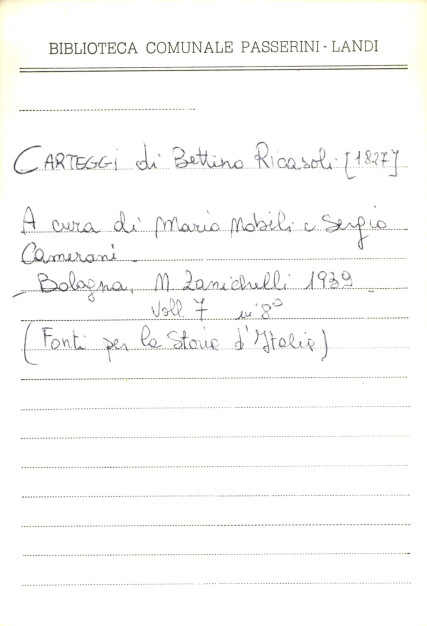 BIBLIOTECA COMUNALE PASSERINI - LANDI
CARTEGGI di Bettino Ricasoli [1827]
A cura di Mario Nobili e Sergio
Camerani.
Bologna, N. Zanichelli 1939
Voll 7 in 8°
(Fonti per la Storia d'Italia)